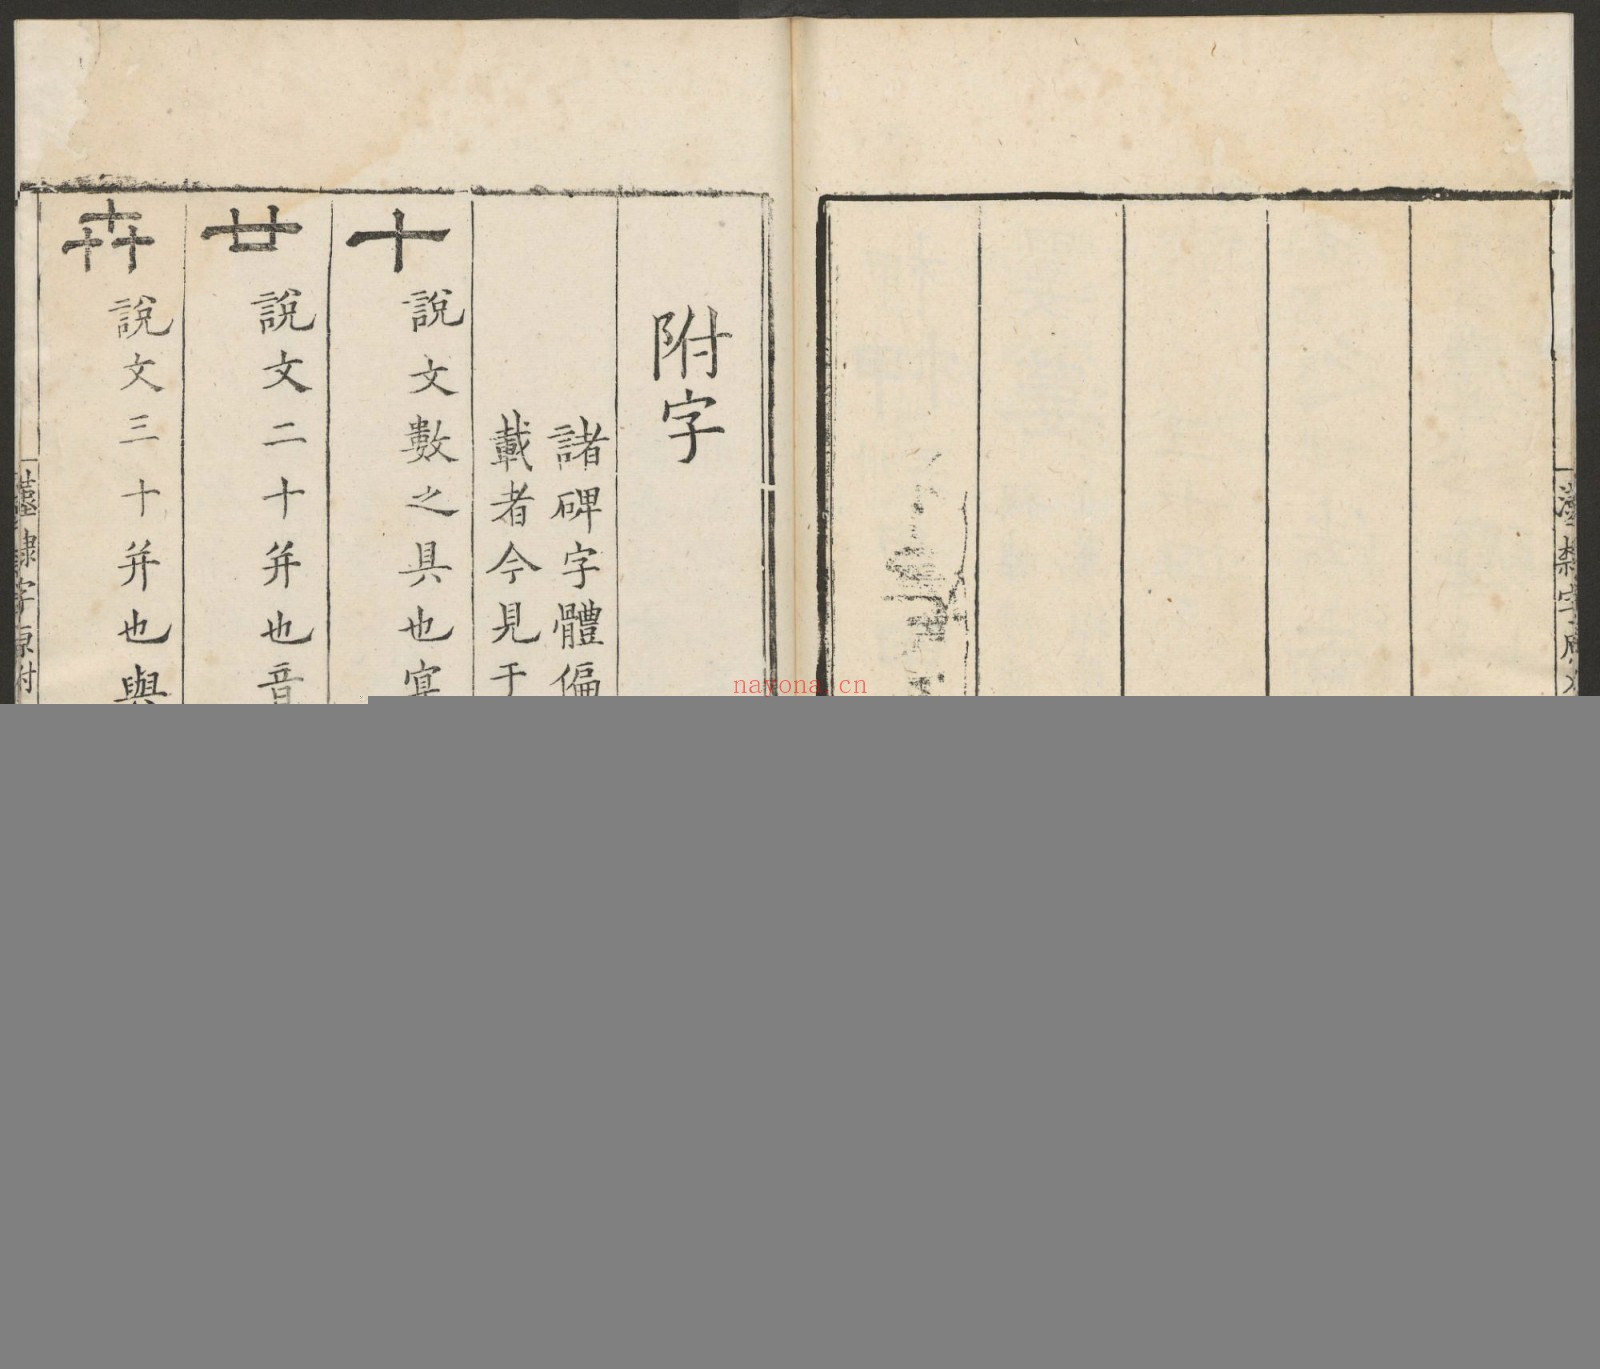 附字
諸碑字體偏
載者今見于
十
說文數之具也
廿
說文二十并也音
卉
說文三十并也與
隸字原附
navona.cn